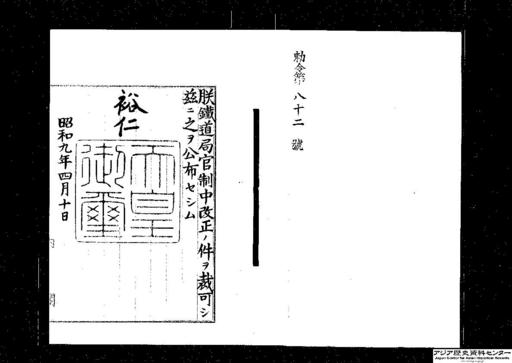 勅令第八十二號
朕鐵道局官制中改正ノ件ヲ裁可シ
茲ニ之ヲ公布セシム
裕仁
天皇
御璽
昭和九年四月十日
内閣
アジア歴史資料センター
Japan Center for Asian Historical Records